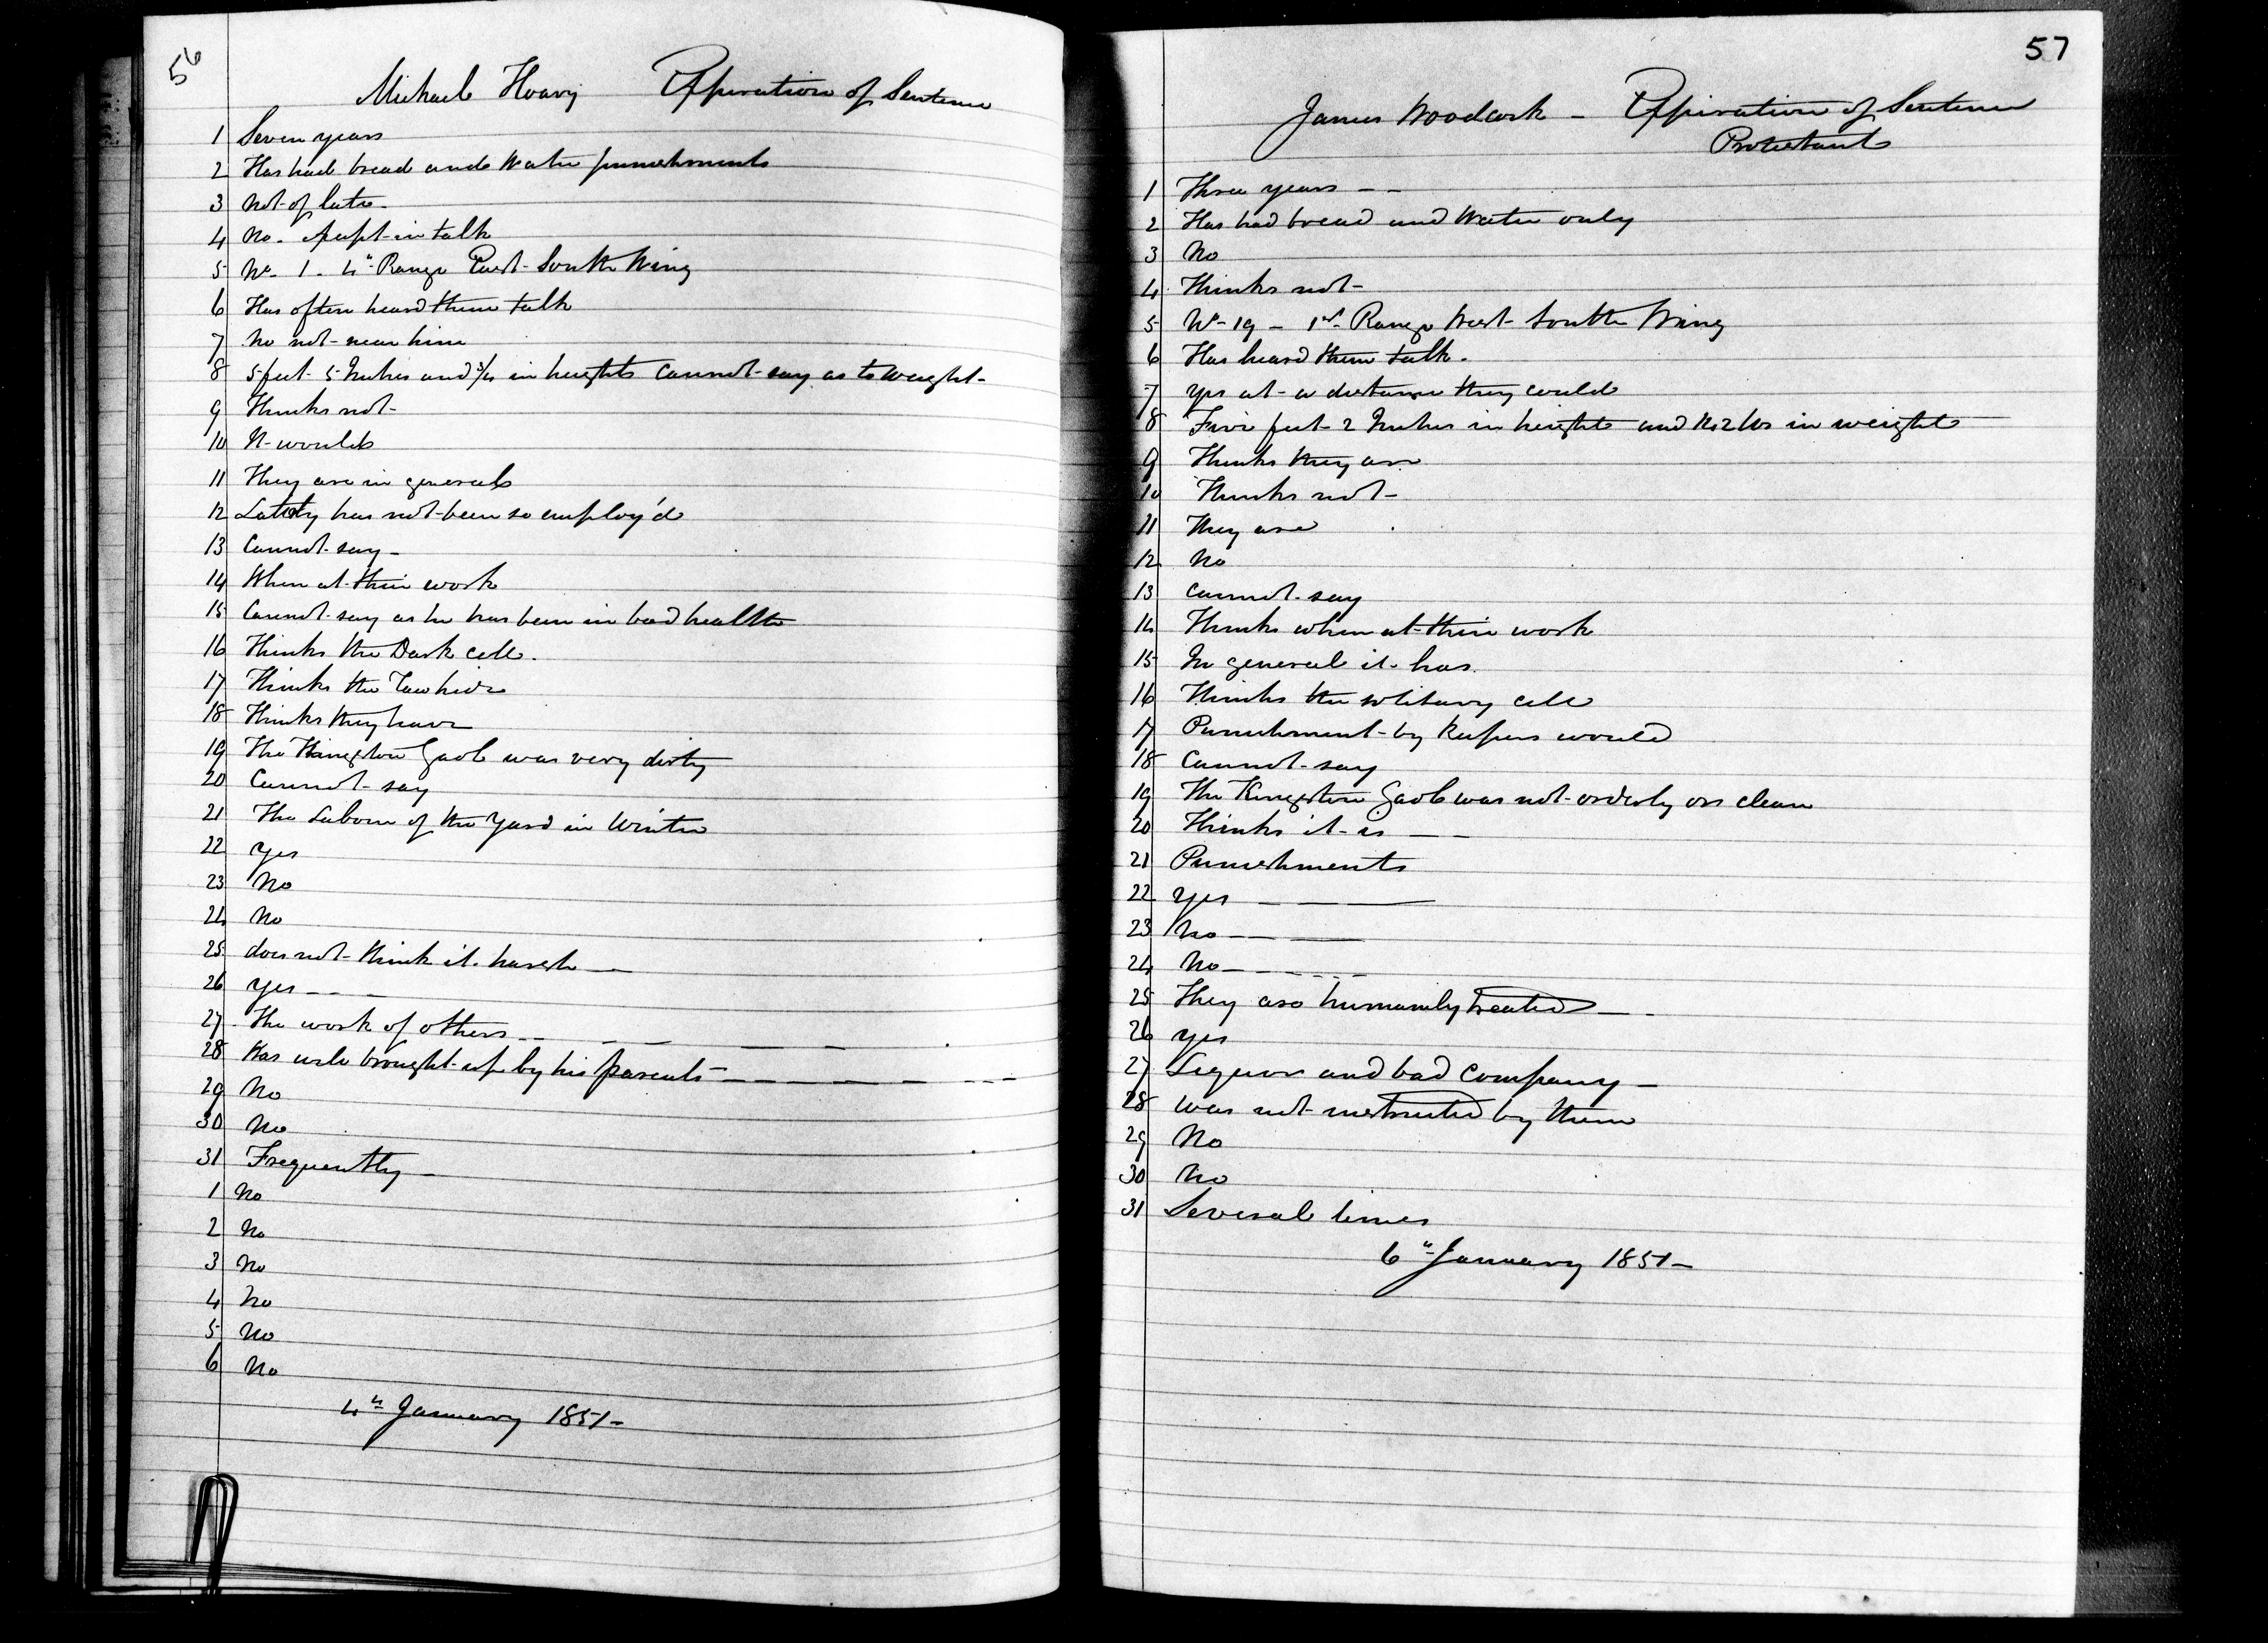 56
Michael Hoary Expiration of Sentence
1 Seven years
2 Has had bread and Water punishments
3 Not of late
4 No. except in talk
5 No. 1 - 4th Range East South Wing
6 Has often heard them talk
7 No not near him
8 5 feet 5 Inches and 3/4 in height cannot say as to weight -
9 Thinks not -
10 It would
11 They are in general
12 Lately has not been so employ'd
13 Cannot say -
14 When at their work
15 Cannot say as he has been in bad health
16 Thinks the Dark cell.
17 Thinks the Raw hide
18 Thinks they have
19 The Kingston Gaol was very dirty
20 Cannot say
21 The Labour of the Yard in Winter
22 Yes
23 No
24 No
25 does not think it harsh —
26 Yes - - -
27 The work of others
28 Was well brought up by his parents
29 No
30 No
31 Frequently -
1 No
2 No
3 No
4 No
5 No
6 No
4th January 1851 -
57
James Woodcock - Expiration of Sentence
Protestant
1 Three years - -
2 Has had bread and Water only
3 No
4 Thinks not -
5 No 19 - 1st Range West South Wing
6 Has heard them talk.
7 Yes at a distance they could
8 Five feet 2 Inches in height and lbs in weight
9 Thinks they are
10 Thinks not -
11 They are
12 No
13 Cannot say
14 Thinks when at their work
15 In general it has.
16 Thinks the solitary cell
17 Punishment by Keepers would
18 Cannot say
19 The Kingston Gaol was not orderly or clean
20 Thinks it is - -
21 Punishments
22 Yes - - —
23 No - - —
24 No - - - - -
25 They are humanely treated - -
26 Yes
27 Liquor and bad company -
28 was not instructed by them
29 No
30 No
31 Several times
6th January 1851 -